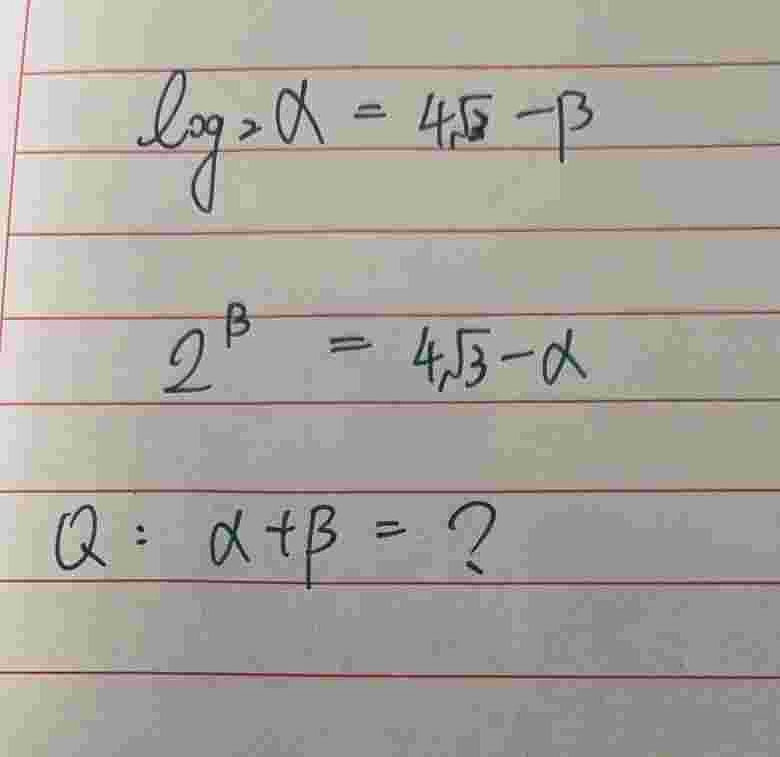 log₂ α = 4√3 - β
2^β = 4√3 - α
Q: α+β = ?